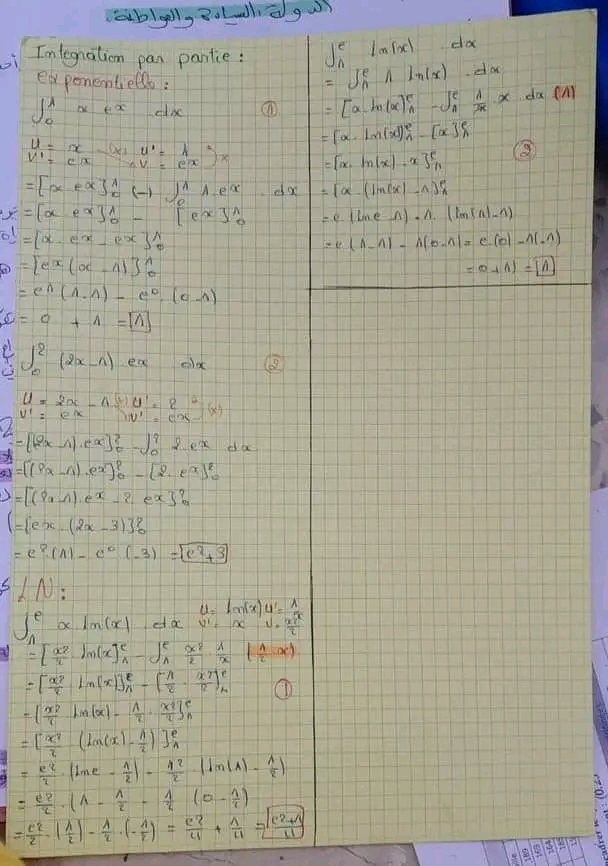 الدولة: السيادة والمواطنة.
Integration par partie :
exponentielle :
∫₀¹ x eˣ dx ①
U = x (+) U' = 1
V' = eˣ V = eˣ
= [x eˣ]₀¹ (-) ∫₀¹ 1. eˣ . dx
= [x eˣ]₀¹ - [eˣ]₀¹
= [x eˣ - eˣ]₀¹
= [eˣ (x - 1)]₀¹
= e¹ (1-1) - e⁰ (0-1)
= 0 + 1 = [1]
∫₀² (2x-1) . eˣ dx ②
U = 2x - 1 (+) U' = 2
V' = eˣ V' = eˣ (x)
= [(2x-1).eˣ]₀² - ∫₀² 2.eˣ dx
= [(2x-1).eˣ]₀² - [2.eˣ]₀²
= [(2x-1).eˣ - 2.eˣ]₀²
= [eˣ (2x-3)]₀²
= e² (1) - e⁰ (-3) = [e²+3]
LN :
∫₁ᵉ x ln(x) . dx U = ln(x) U' = 1/x
V' = x V = x²/2
= [x²/2 ln(x)]₁ᵉ - ∫₁ᵉ x²/2 . 1/x (1/2 x)
= [x²/2 ln(x)]₁ᵉ - [1/2 . x²/2]₁ᵉ ①
= [x²/2 ln(x) - 1/2 . x²/2]₁ᵉ
= [x²/2 (ln(x) - 1/2)]₁ᵉ
= e²/2 . (ln e - 1/2) - 1²/2 . (ln(1) - 1/2)
= e²/2 . (1 - 1/2 - 1/2 (0 - 1/2)
= e²/2 . (1/2) - 1/2 . (-1/2) = e²/4 + 1/4 = [e²+1/4]
∫₁ᵉ ln(x) . dx
= ∫₁ᵉ 1 ln(x) . dx
= [x ln(x)]₁ᵉ - ∫₁ᵉ 1/x . x dx (1)
= [x . ln(x)]₁ᵉ - [x]₁ᵉ
= [x . ln(x) - x]₁ᵉ ②
= [x . (ln(x) - 1]₁ᵉ
= e . (ln e - 1) - 1 . (ln(1) - 1)
= e (1-1) - 1(0-1) = e(0) - 1(-1)
= 0+1) = [1]